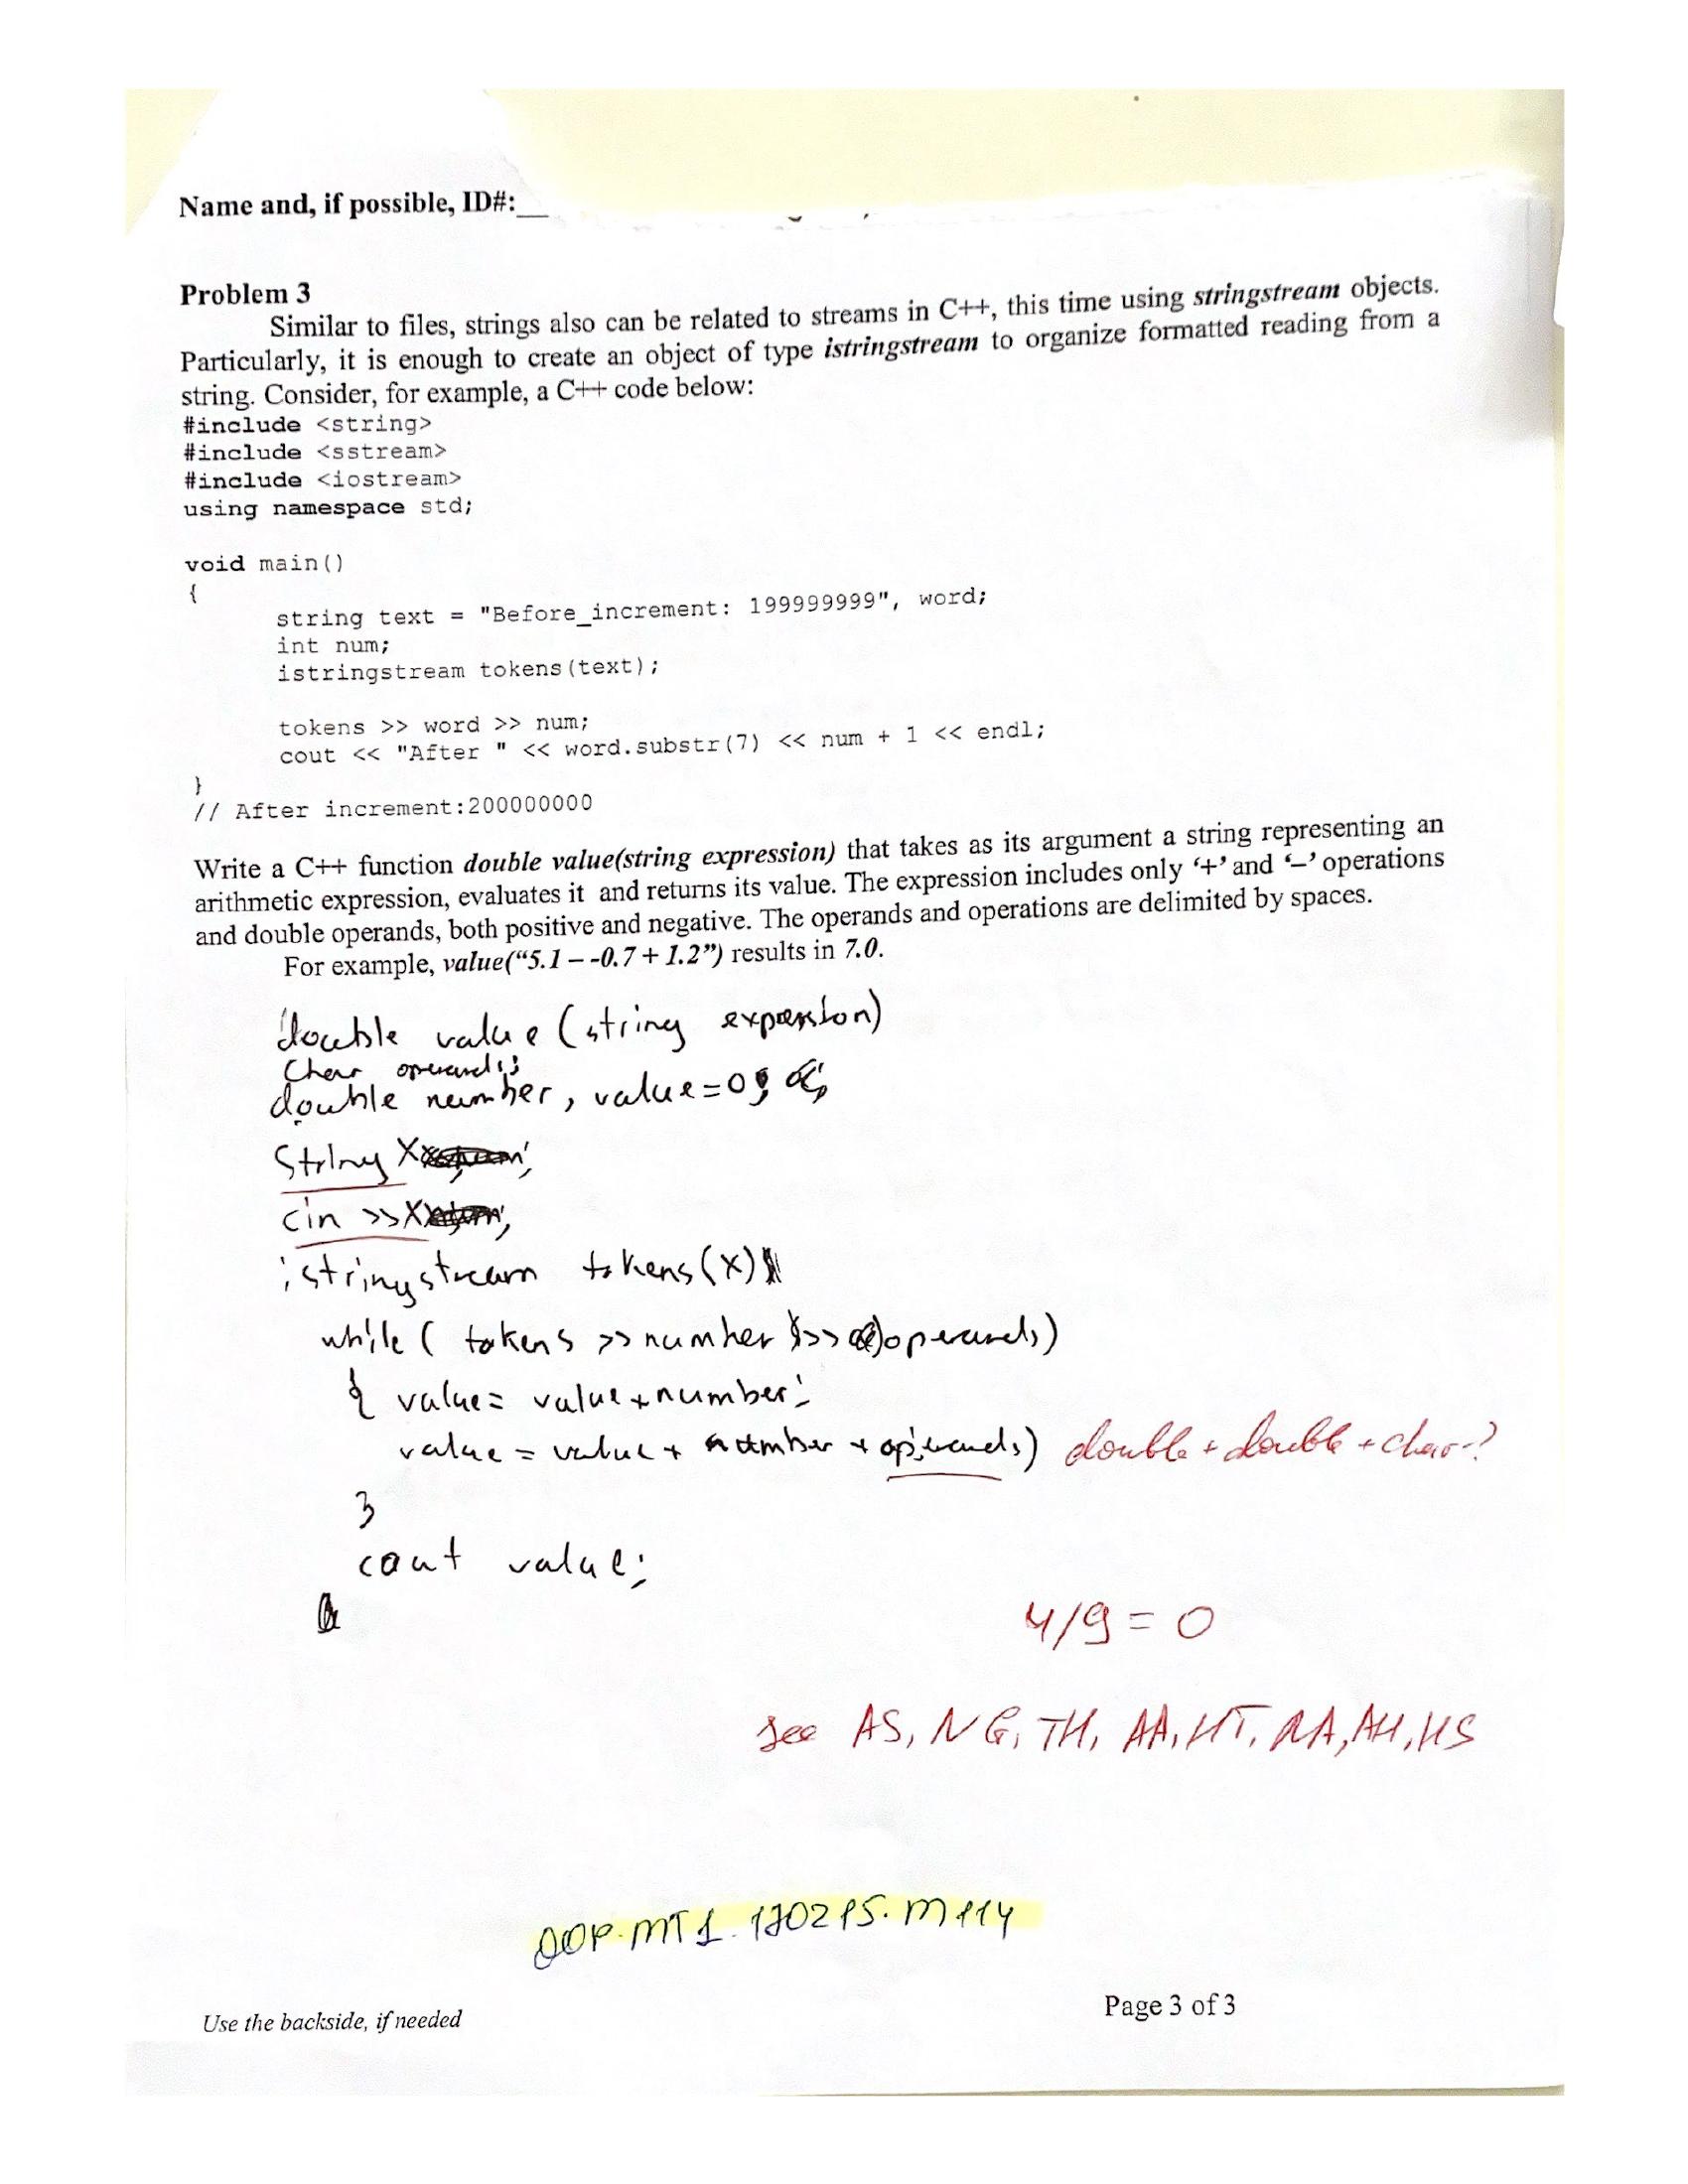 Name and, if possible, ID#:__
Problem 3
Similar to files, strings also can be related to streams in C++, this time using stringstream objects.
Particularly, it is enough to create an object of type istringstream to organize formatted reading from a
string. Consider, for example, a C++ code below:
#include <string>
#include <sstream>
#include <iostream>
using namespace std;
void main()
{
string text = "Before_increment: 199999999", word;
int num;
istringstream tokens(text);
tokens >> word >> num;
cout << "After " << word.substr(7) << num + 1 << endl;
}
// After increment:200000000
Write a C++ function double value(string expression) that takes as its argument a string representing an
arithmetic expression, evaluates it and returns its value. The expression includes only ‘+’ and ‘–’ operations
and double operands, both positive and negative. The operands and operations are delimited by spaces.
For example, value(“5.1 – -0.7 + 1.2”) results in 7.0.
double value (string expression)
Char operands;
double number, value=0;
String X
cin >>X
istringstream tokens(x)
while ( tokens >> number >> operands)
{ value= value+number;
value = value + number + operands) double + double + char-?
}
cout value;
4/9 = 0
see AS, NG, TH, AA, HT, RA, AH, HS
OOP.MT1.170215.M114
Use the backside, if needed
Page 3 of 3